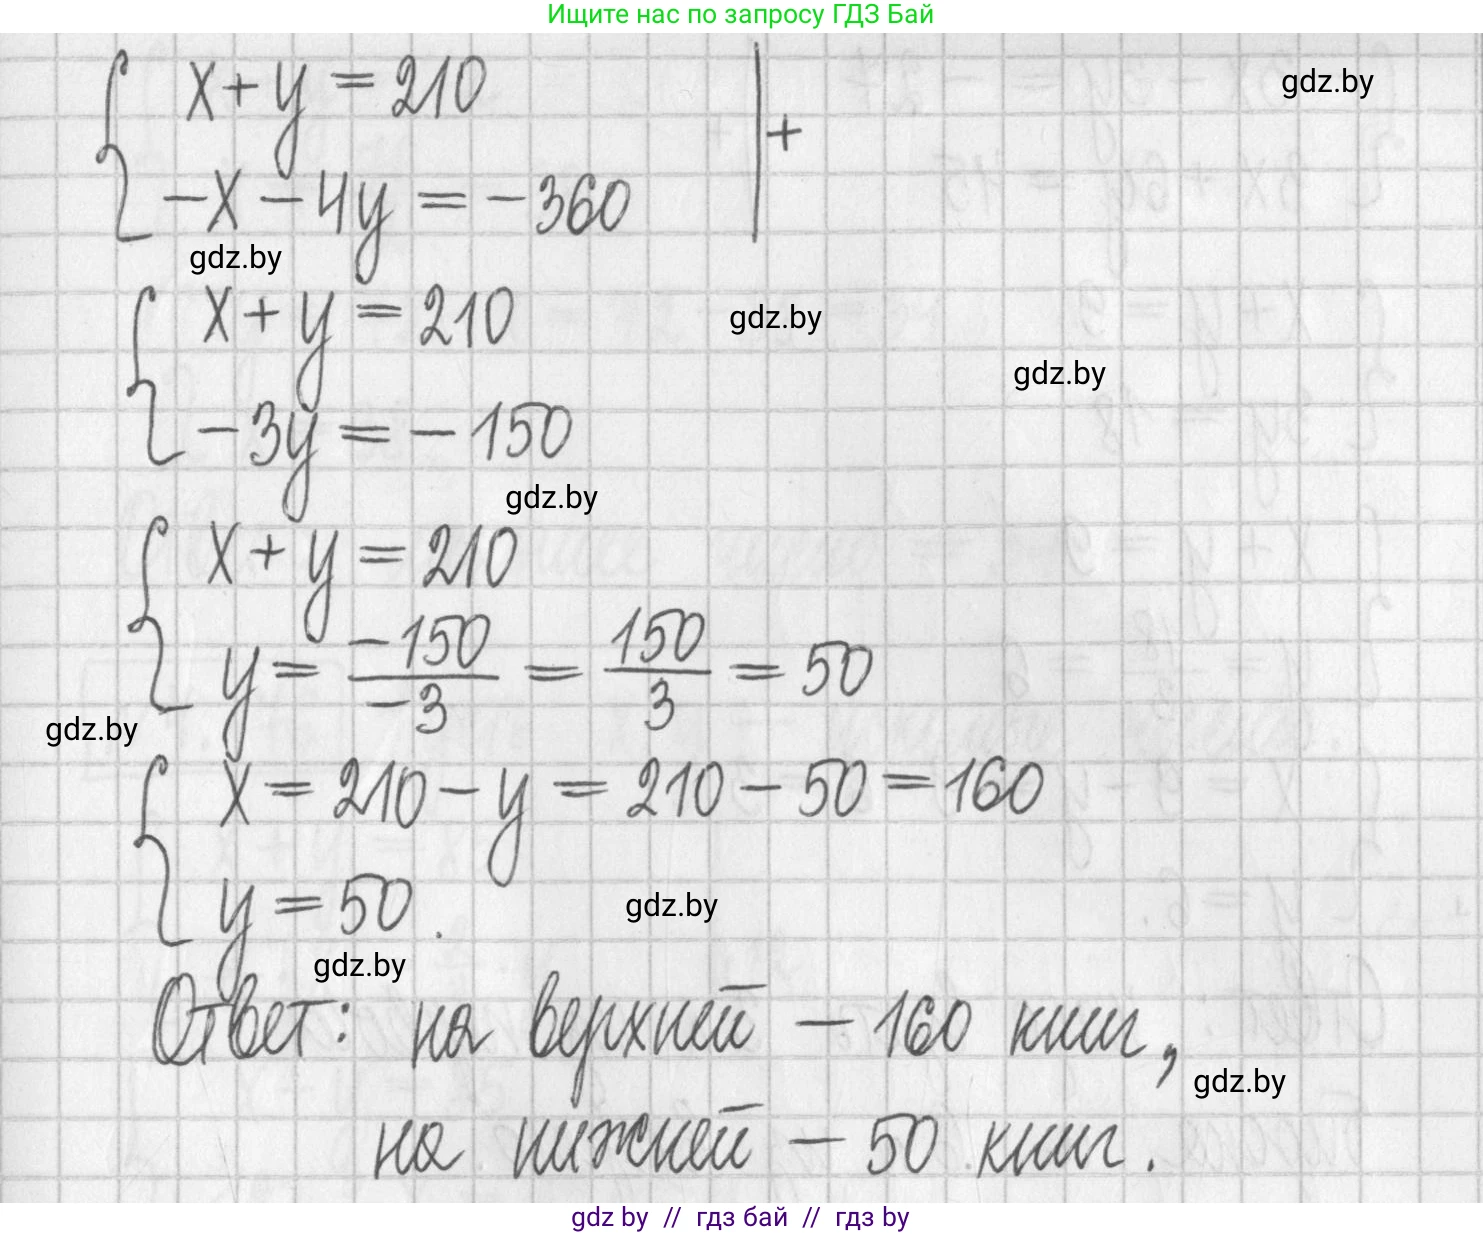 Ищите нас по запросу ГДЗ Бай
x + y = 210
gdz.by
+
-x - 4y = -360
gdz.by
x + y = 210
gdz.by
gdz.by
-3y = -150
gdz.by
x + y = 210
y = -150/-3 = 150/3 = 50
gdz.by
x = 210 - y = 210 - 50 = 160
y = 50.
gdz.by
gdz.by
Ответ: на верхней - 160 книг,
gdz.by
на нижней - 50 книг.
gdz by // гдз бай // гдз by